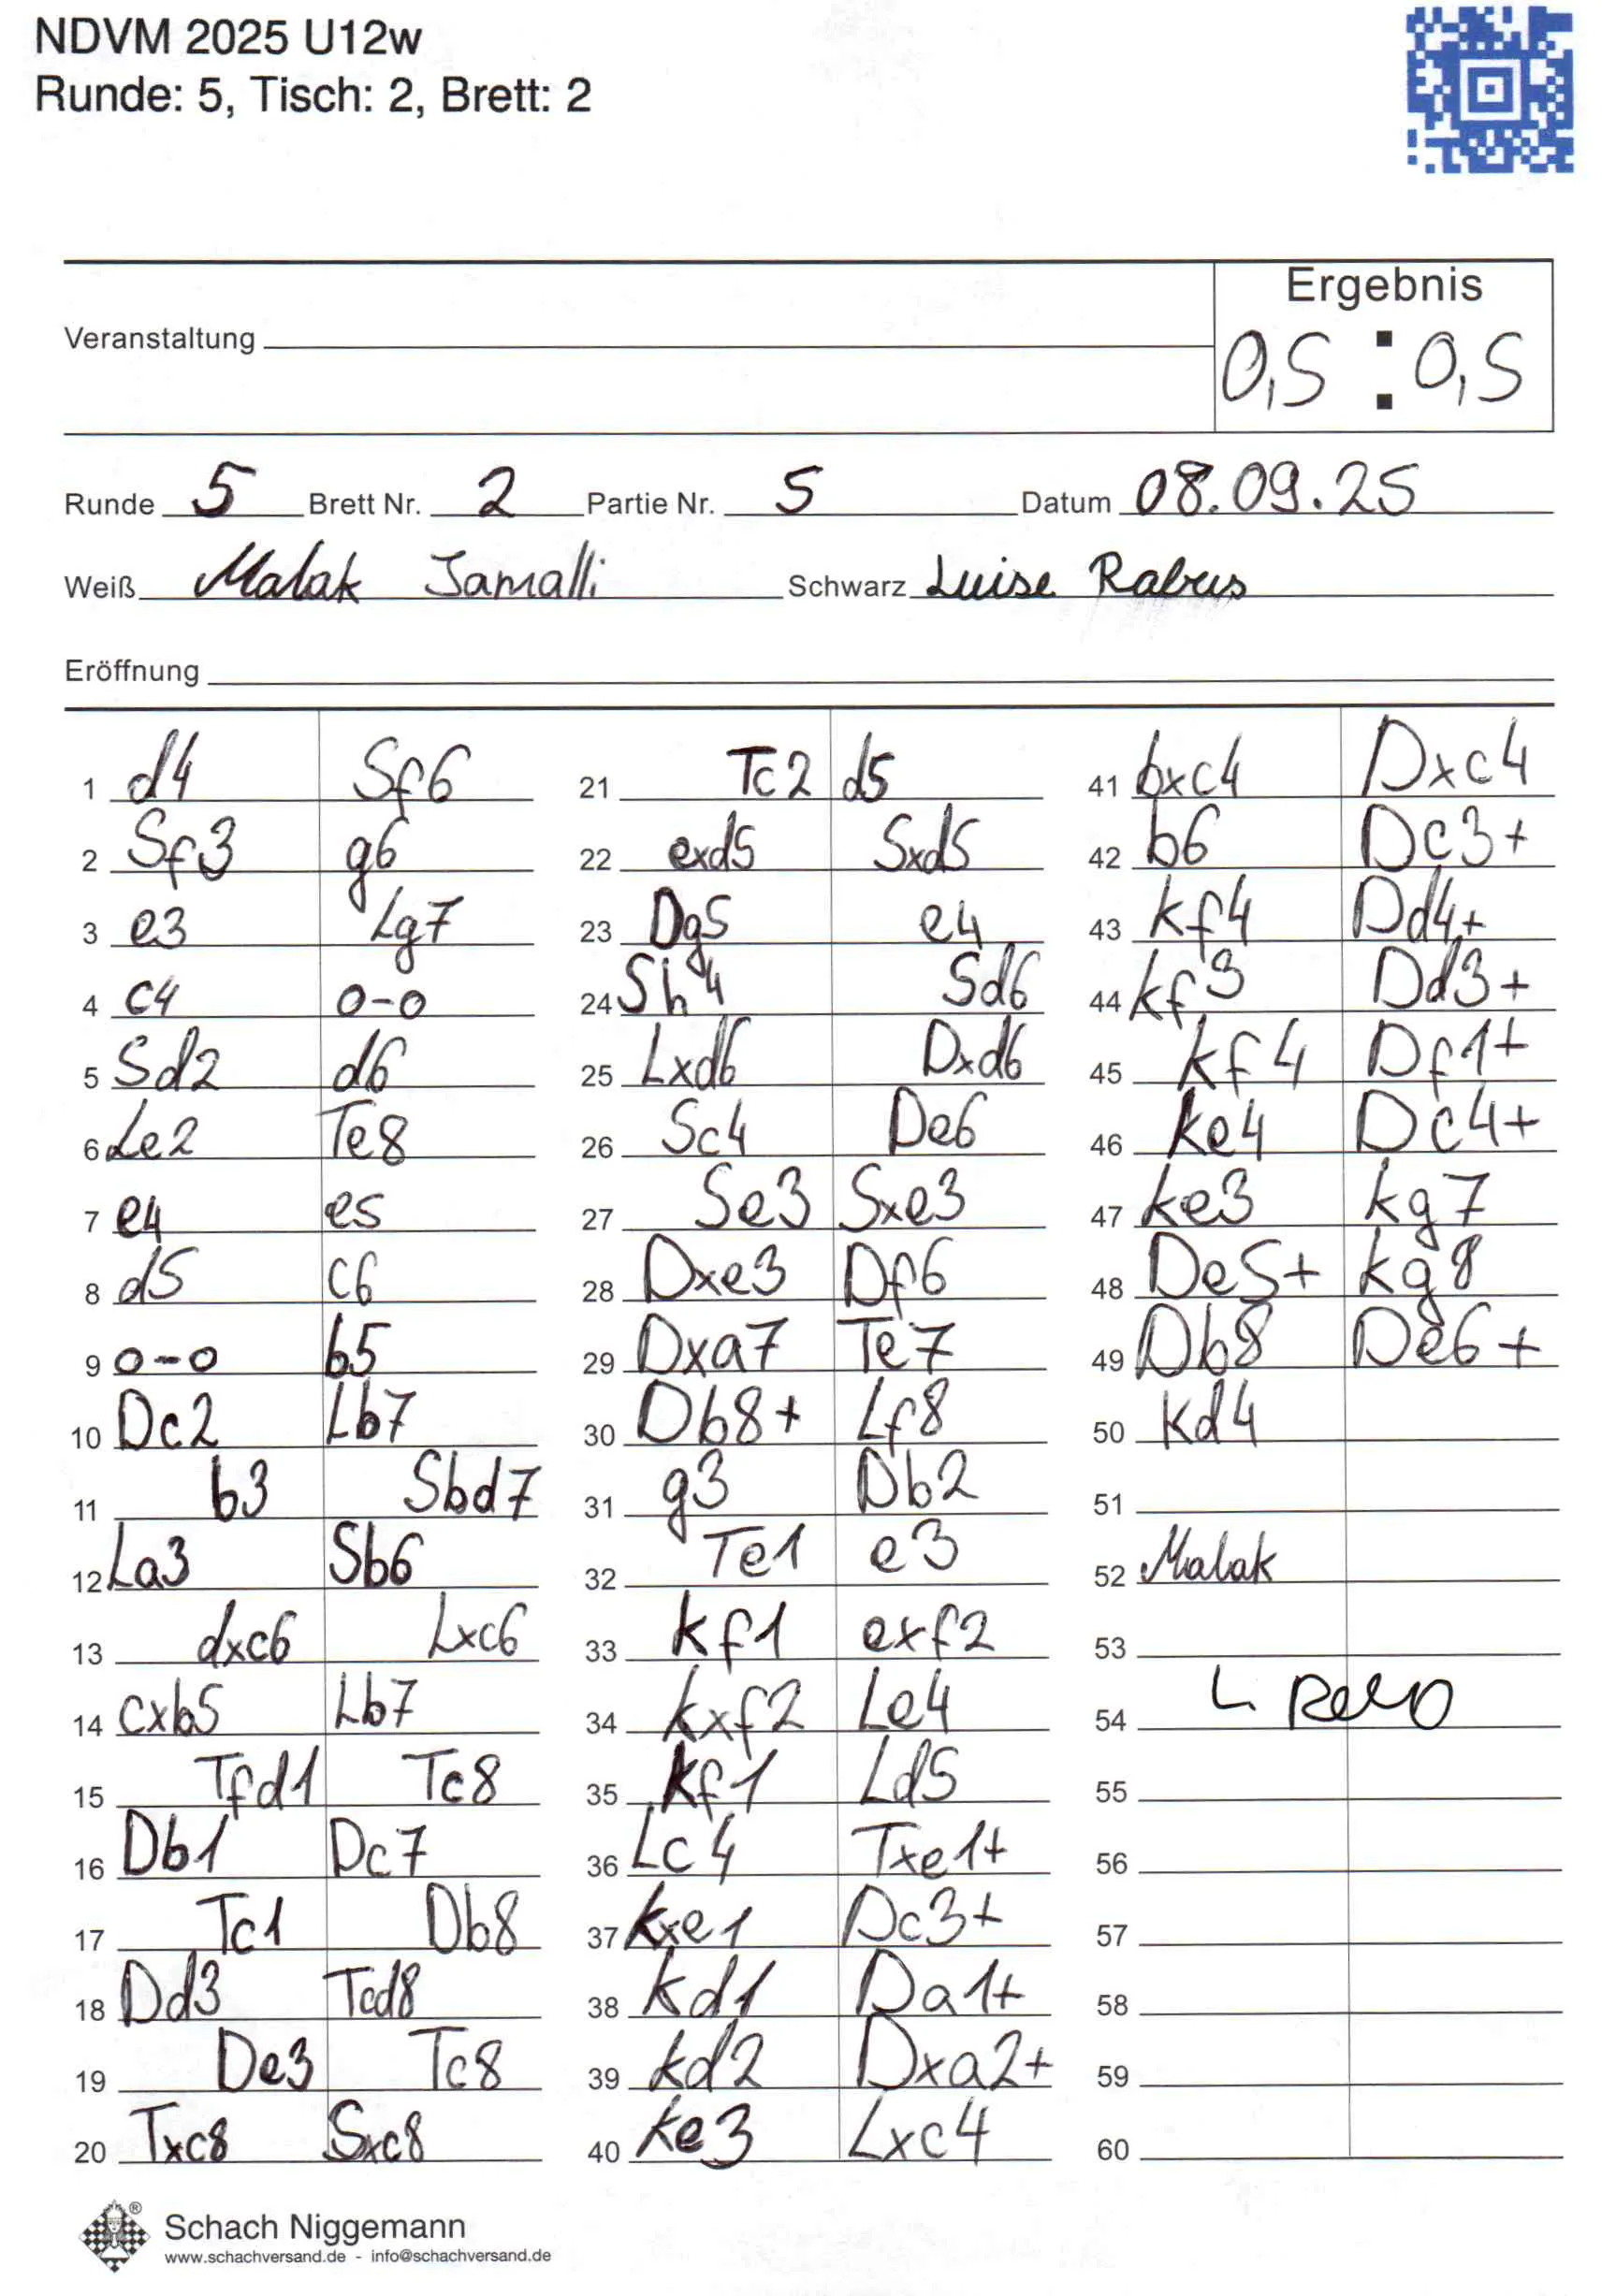 NDVM 2025 U12w
Runde: 5, Tisch: 2, Brett: 2
Ergebnis
Veranstaltung
0,5 : 0,5
Runde 5 Brett Nr. 2 Partie Nr. 5 Datum 08.09.25
Weiß Malak Jamalli Schwarz Luise Rabus
Eröffnung
1 d4 Sf6
2 Sf3 g6
3 e3 Lg7
4 c4 0-0
5 Sd2 d6
6 Le2 Te8
7 e4 e5
8 d5 c6
9 0-0 b5
10 Dc2 Lb7
11 b3 Sbd7
12 La3 Sb6
13 dxc6 Lxc6
14 cxb5 Lb7
15 Tfd1 Tc8
16 Db1 Dc7
17 Tc1 Db8
18 Dd3 Tcd8
19 De3 Tc8
20 Txc8 Sxc8
21 Tc2 d5
22 exd5 Sxd5
23 Dg5 e4
24 Sh4 Sd6
25 Lxd6 Dxd6
26 Sc4 De6
27 Se3 Sxe3
28 Dxe3 Df6
29 Dxa7 Te7
30 Db8+ Lf8
31 g3 Db2
32 Te1 e3
33 kf1 exf2
34 kxf2 Le4
35 kf1 Ld5
36 Lc4 Txe1+
37 kxe1 Dc3+
38 kd1 Da1+
39 kd2 Dxa2+
40 ke3 Lxc4
41 bxc4 Dxc4
42 b6 Dc3+
43 kf4 Dd4+
44 kf3 Dd3+
45 kf4 Df1+
46 ke4 Dc4+
47 ke3 kg7
48 De5+ kg8
49 Db8 De6+
50 kd4
51
52 Malak
53
54
55
56
57
58
59
60
Schach Niggemann
www.schachversand.de - info@schachversand.de